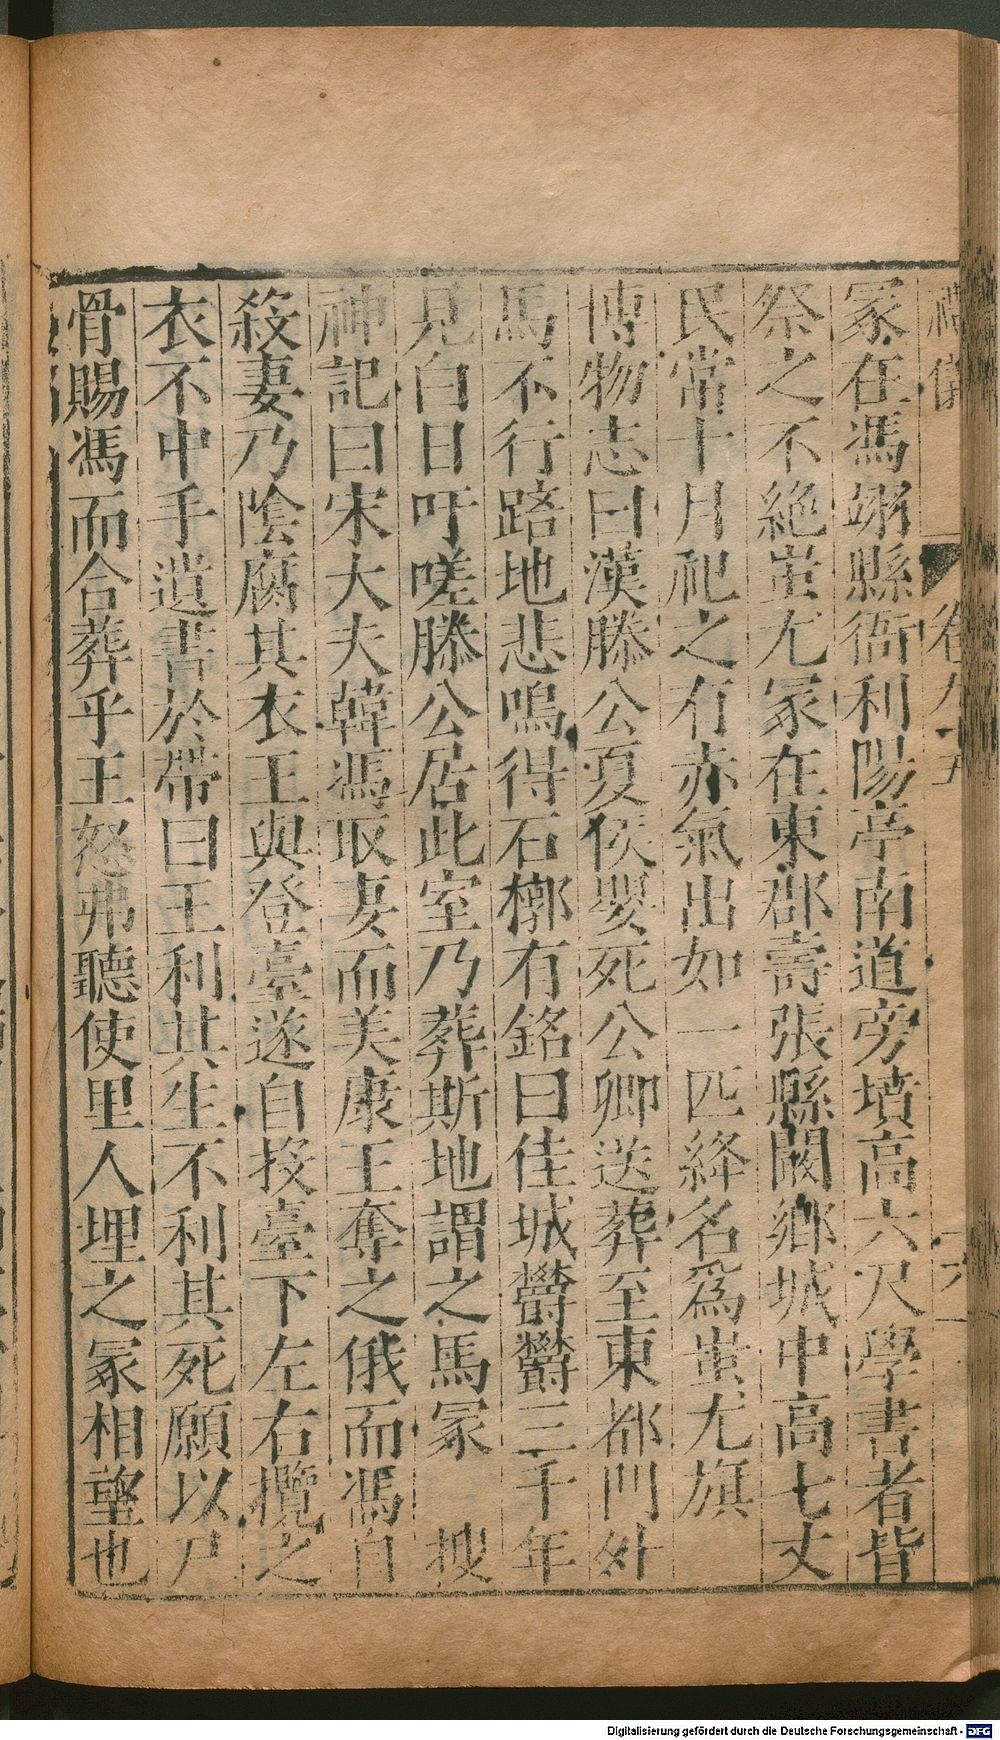 禮儀 卷八十五 六
冢在馮翊縣衙利陽亭南道旁墳高六尺學書者皆
祭之不絕蚩尤冢在東郡壽張縣闞鄉城中高七丈
民常十月祀之有赤氣出如一匹絳名爲蚩尤旗
博物志曰漢滕公夏侯嬰死公卿送葬至東都門外
馬不行踣地悲鳴得石槨有銘曰佳城欝欝三千年
見白日吁嗟滕公居此室乃葬斯地謂之馬冢 搜
神記曰宋大夫韓馮取妻而美康王奪之俄而馮自
殺妻乃陰腐其衣王與登臺遂自投臺下左右攬之
衣不中手遺書於帶曰王利其生不利其死願以尸
骨賜馮而合葬乎王怒弗聽使里人埋之冢相望也
Digitalisierung gefördert durch die Deutsche Forschungsgemeinschaft - DFG